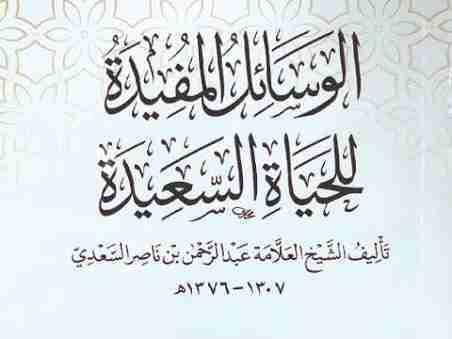 الوَسَائِلُ المُفِيدَةُ
لِلحَيَاةِ السَّعِيدَةِ
تَأْلِيفُ الشَّيْخِ العَلَّامَة عَبْدالرَّحْمٰن بْن نَاصِر السَّعْدِيّ
١٣٠٧-١٣٧٦هـ